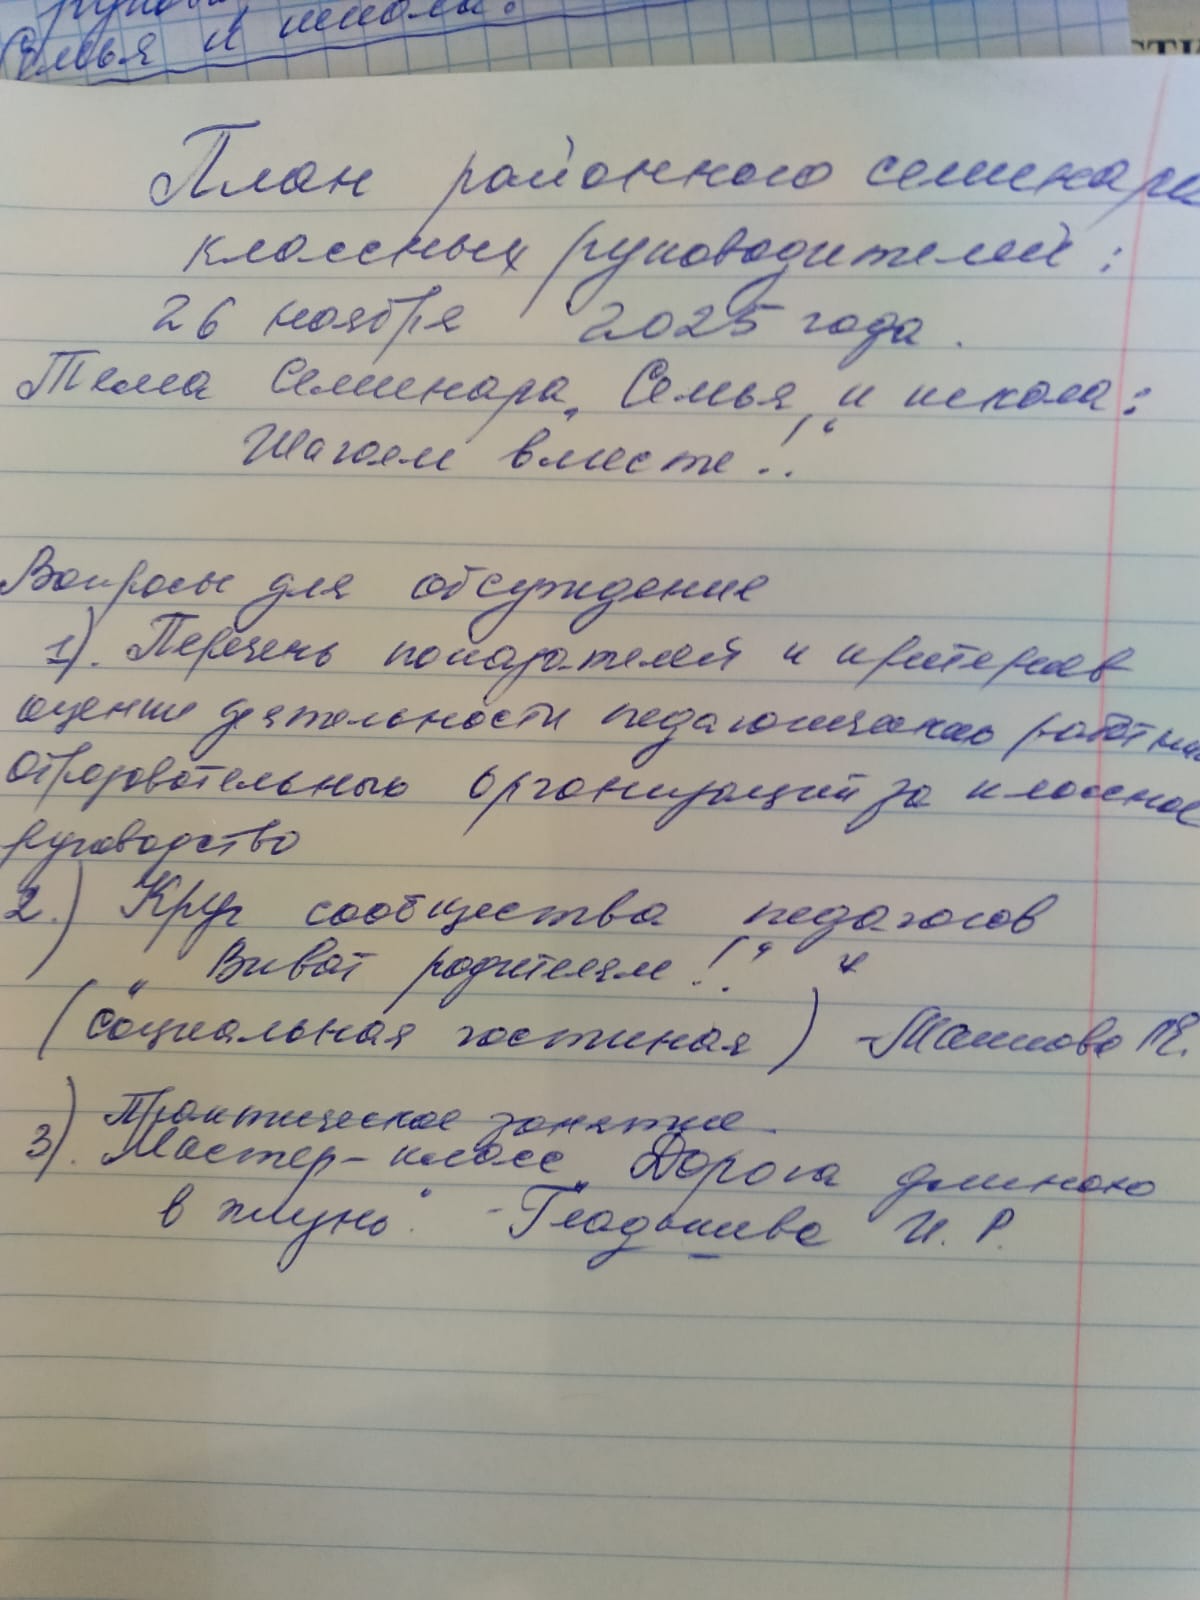 Семья и школа:
План районного семинара
классных руководителей:
26 ноября 2025 года.
Тема Семинара „Семья и школа:
Шагаем вместе!“
Вопросы для обсуждение
1). Перечень показателей и критериев
оценки деятельности педагогических
образовательных организаций за классное
руководство
2.) Круг сообщества педагогов
„Виват родителям!“
(социальная гостиная) - М.Е.
Практическое занятие.
3). Мастер-класс „Дорога длиною
в жизнь“. - Гладышева И. Р.